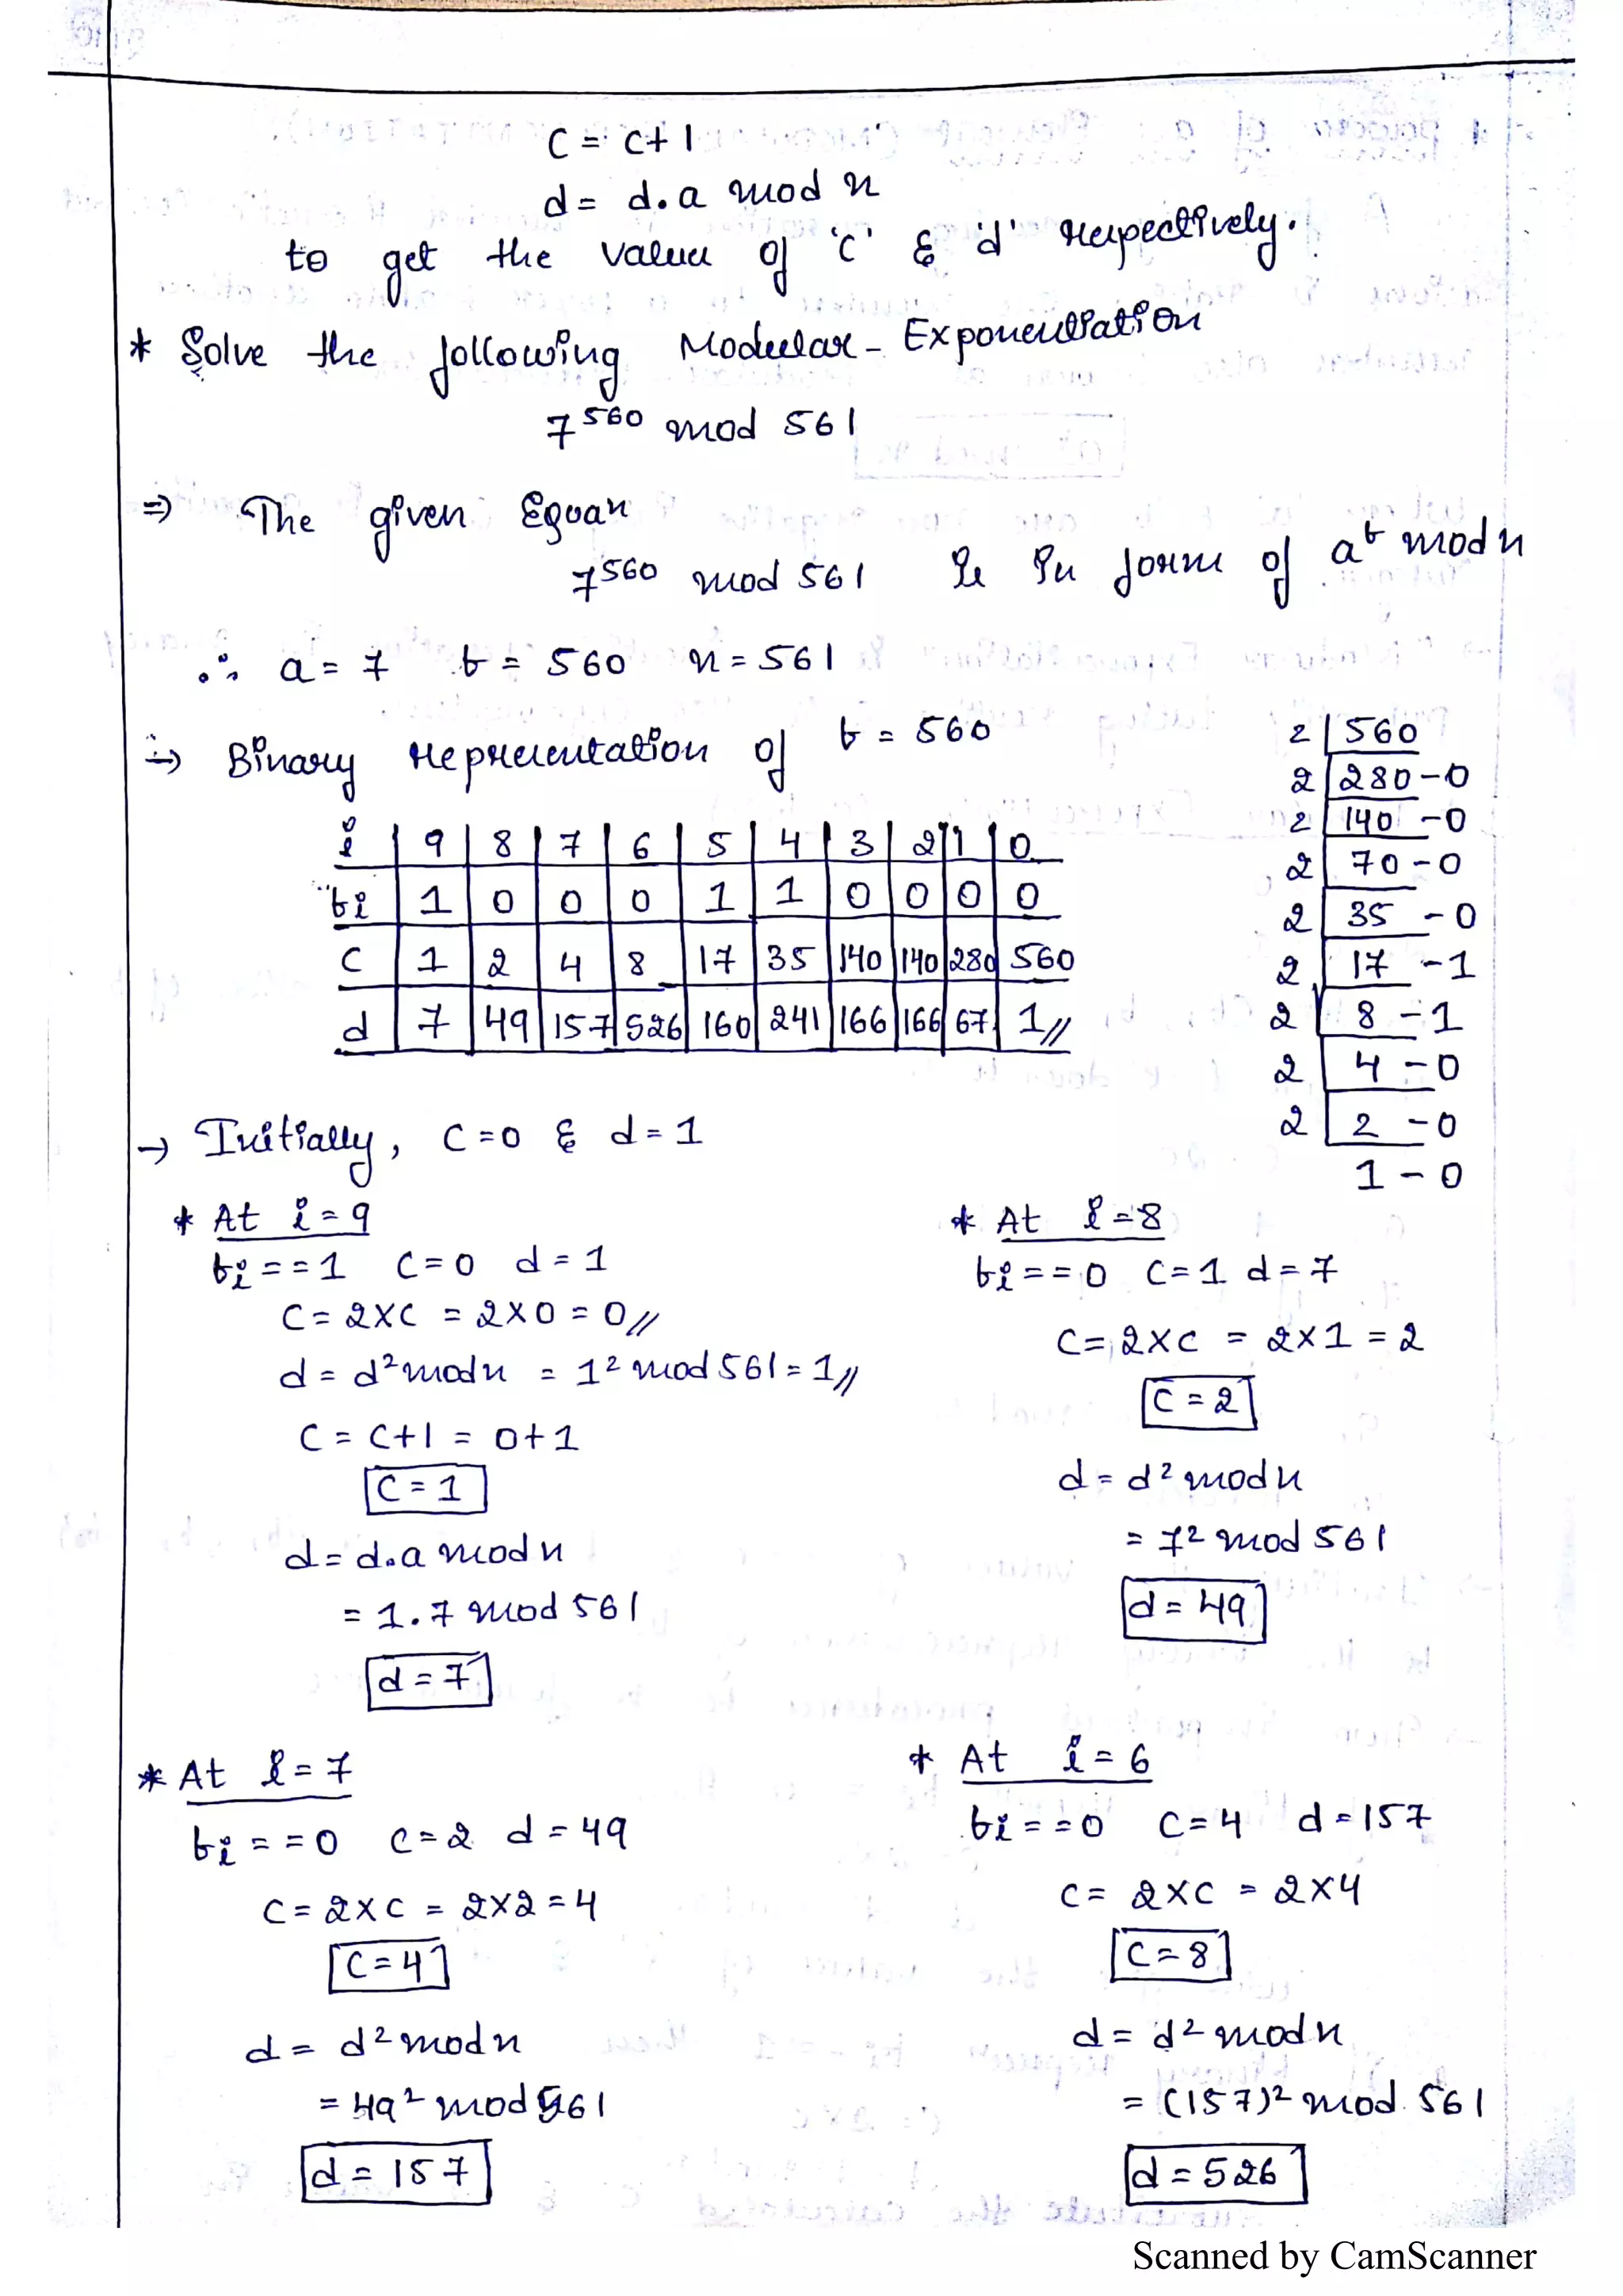 C = C+1
d = d.a mod n
to get the values of 'C' & 'd' respectively.
* Solve the following Modular-Exponentiation
7^560 mod 561
⇒ The given Equan
7^560 mod 561 is in form of a^b mod n
∴ a = 7 b = 560 n = 561
→ Binary representation of b = 560
i 9 8 7 6 5 4 3 2 1 0
bi 1 0 0 0 1 1 0 0 0 0
C 1 2 4 8 17 35 140 140 280 560
d 7 49 157 526 160 241 166 166 67 1//
2 560
2 280 - 0
2 140 - 0
2 70 - 0
2 35 - 0
2 17 - 1
2 8 - 1
2 4 - 0
2 2 - 0
1 - 0
→ Initially, C = 0 & d = 1
* At i = 9
bi == 1 C = 0 d = 1
C = 2×C = 2×0 = 0//
d = d² mod n = 1² mod 561 = 1//
C = C+1 = 0+1
C = 1
d = d.a mod n
= 1.7 mod 561
d = 7
* At i = 8
bi == 0 C = 1 d = 7
C = 2×C = 2×1 = 2
C = 2
d = d² mod n
= 7² mod 561
d = 49
* At i = 7
bi == 0 C = 2 d = 49
C = 2×C = 2×2 = 4
C = 4
d = d² mod n
= 49² mod 561
d = 157
* At i = 6
bi == 0 C = 4 d = 157
C = 2×C = 2×4
C = 8
d = d² mod n
= (157)² mod 561
d = 526
Scanned by CamScanner